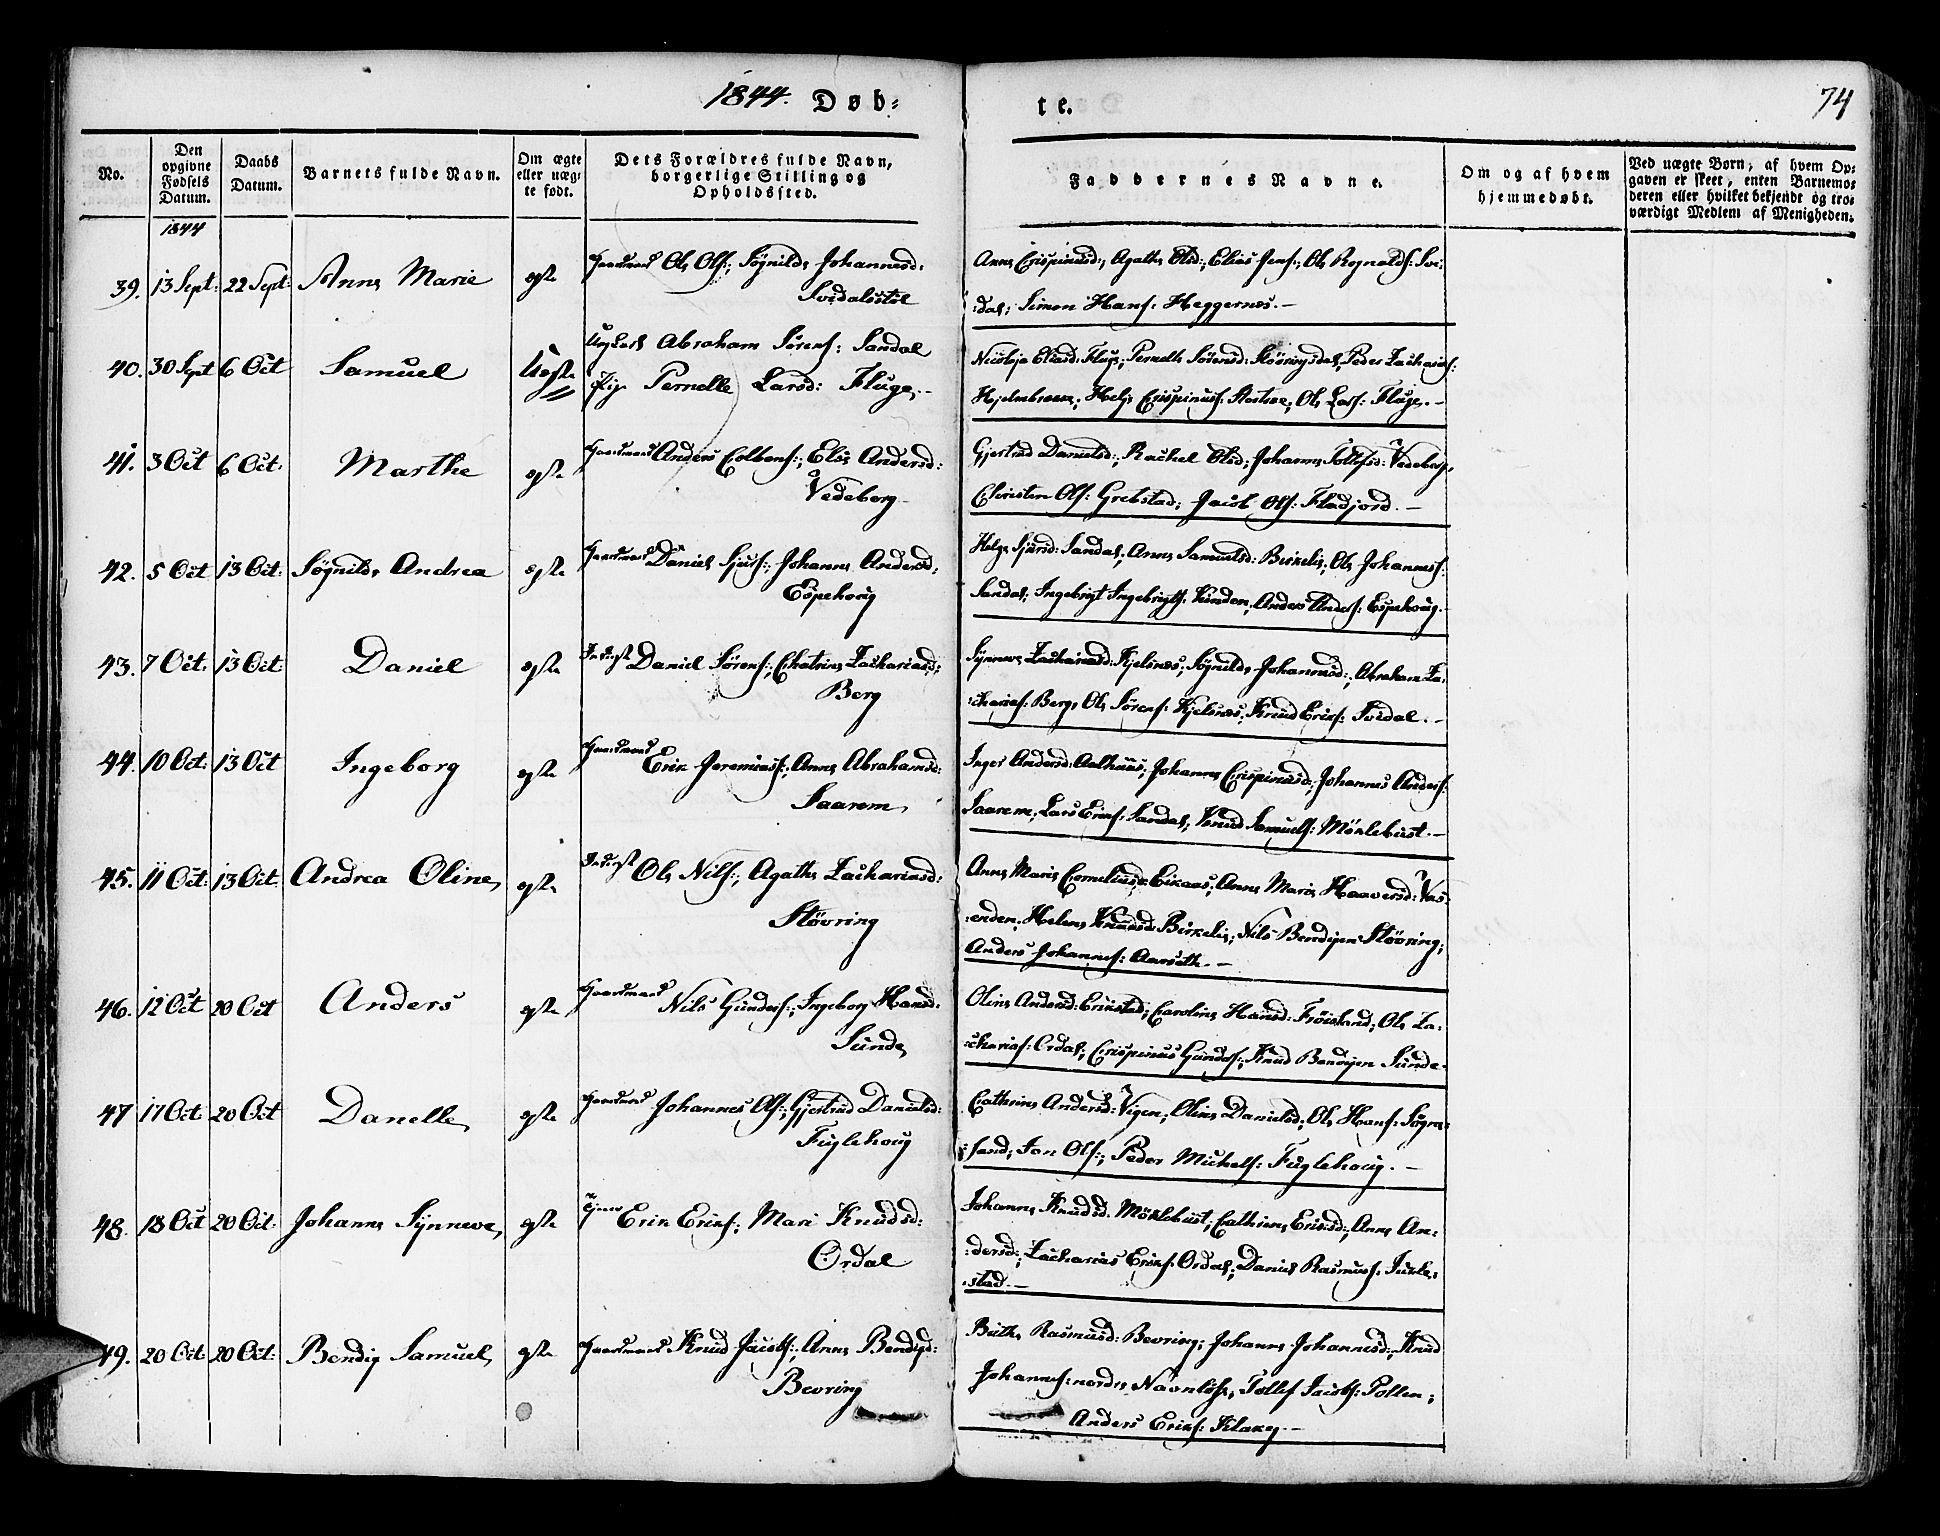 1844. Døb-
te.
74
No.
Den opgivne Fødsels Datum.
Daabs Datum.
Barnets fulde Navn.
Om ægte eller uæg- te født.
Dets Forældres fulde Navn, borgerlige Stilling og Opholdssted.
Faddernes Navne.
Om og af hvem hjemmedøbt.
Ved uægte Børn, af hvem Op- gaven er skeet, enten Barnemo- deren eller hvilket bekjendt og tro- værdigt Medlem af Menigheden.
1844
39. 13 Sept: 22 Sept: Anne Marie egte Gaardmand Ole Ols:; Søgnilde Johannesd:
Svidalsstøl
Anne Crispinusd:, Agathe Olsd:; Elias Jens:; Ole Rognalds: Svi-
:dal; Simon Hans: Heggernes.-
40. 30 Sept 6 Oct Samuel Uegte Ungkarl Abraham Sørens: Sandal
Pige Pernelle Larsd: Fluge.-
Nicoleja Eliasd: Fluge; Pernelle Sørensd: Støvringsdal; Peder Zacharias:
Hjelmbrekke; Helje Crispinus: ; Ole Lars: Fluge.-
41. 3 Oct 6 Oct: Marthe egte Gaardmand Anders Colbens:; Else Andersd:
Vedeborg-
Gjertrud Danielsd:; Rachel Olsd:; Johanne Tollefsd: Vedeborg,
Christen Ols: Grebstad; Jacob Ols: Fladjord.-
42. 5 Oct 13 Oct: Søgnilde Andrea egte Gaardmand Daniel Sjurs:; Johanne Andersd:
Espehoug
Helge Sjursd: Sandal; Anne Samuelsd: Birkelie; Ole Johannes:
Sandal; Ingebrigt Ingebrigts: Kunden; Anders Anders: Espehoug.-
43. 7 Oct: 13 Oct: Daniel egte Inderst Daniel Sørens:; Chatrine Zachariasd:
Berg
Synneve Zachariasd: Kjelsnes; Søgnilde Johannesd:; Abraham Za-
:charias: Berg, Ole Sørens: Kjelsnes; Knud Eriks: Svidal.-
44. 10 Oct: 13 Oct Ingeborg egte Gaardmand Erik Jeremias:; Anne Abrahamsd:
Saarem,
Inger Andersd: Aalhuus; Johanne Crispinusd:; Johannes Anders:
Saarem; Lars Eriks: Sandal; Knud Samuels: Möklebust.-
45. 11 Oct: 13 Oct. Andrea Oline, egte Inderst Ole Nils:; Agathe Zachariasd:
Støvring
Anne Marie Corneliusd: Eikaas; Anne Marie Haaversd: Vas-
:enden; Helene Knudsd: Birkelie; Nils Bendixen Støvring;
Anders Johannes: Aarseth.-
46. 12 Oct 20 Oct Anders egte Gaardmand Nils Gunders:; Ingeborg Hansd:
Sunde,
Oline Andersd: Erikstad; Caroline Hansd: Frøisland; Ole Za-
:charias: Ordal; Crispinus Gunders:; Knud Bendixen Sunde.
47 17 Oct 20 Oct Danelle, egte Gaardmand Johannes Ols:; Gjertrud Danielsd:
Fuglehoug
Cathrine Andersd: Vigen; Oline Danielsd:; Ole Hans: Søgne-
:sand; Jon Ols:; Peder Michels: Fuglehoug.-
48. 18 Oct 20 Oct: Johanne Synneve, egte Erik Eriks:; Mari Knudsd:
Ordal
Johanne Knudsd. Möklebust; Cathrine Eriksd:; Anne An-
:dersd:; Zacharias Eriks: Ordal; Daniel Rasmus: Jukle-
:stad.-
49. 20 Oct: 20 Oct: Bendix Samuel, egte Gaardmand Knud Jacobs:; Anne Bendixd:
Bevring
Rasmusd: Bevring; Johanne Johannesd:; Knud
Johannes: nordre Navnløse, Tollef Jacobs: Pollen;
Anders Eriks: Klaky-